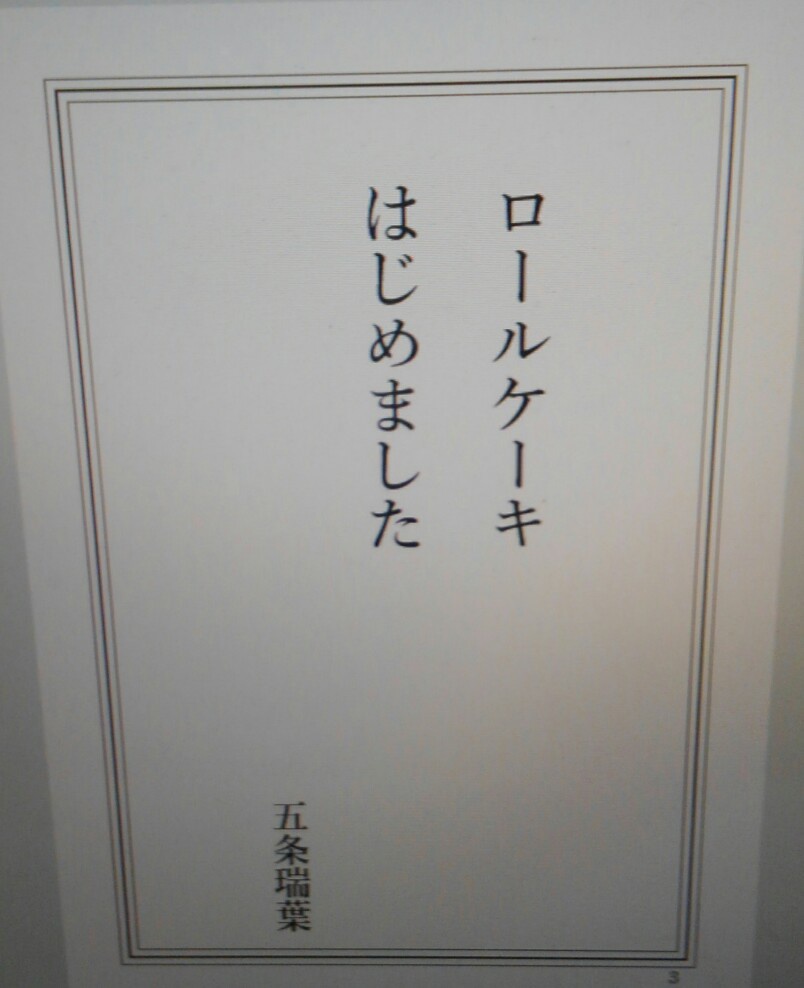 ロールケーキ
はじめました
五条瑞葉
3